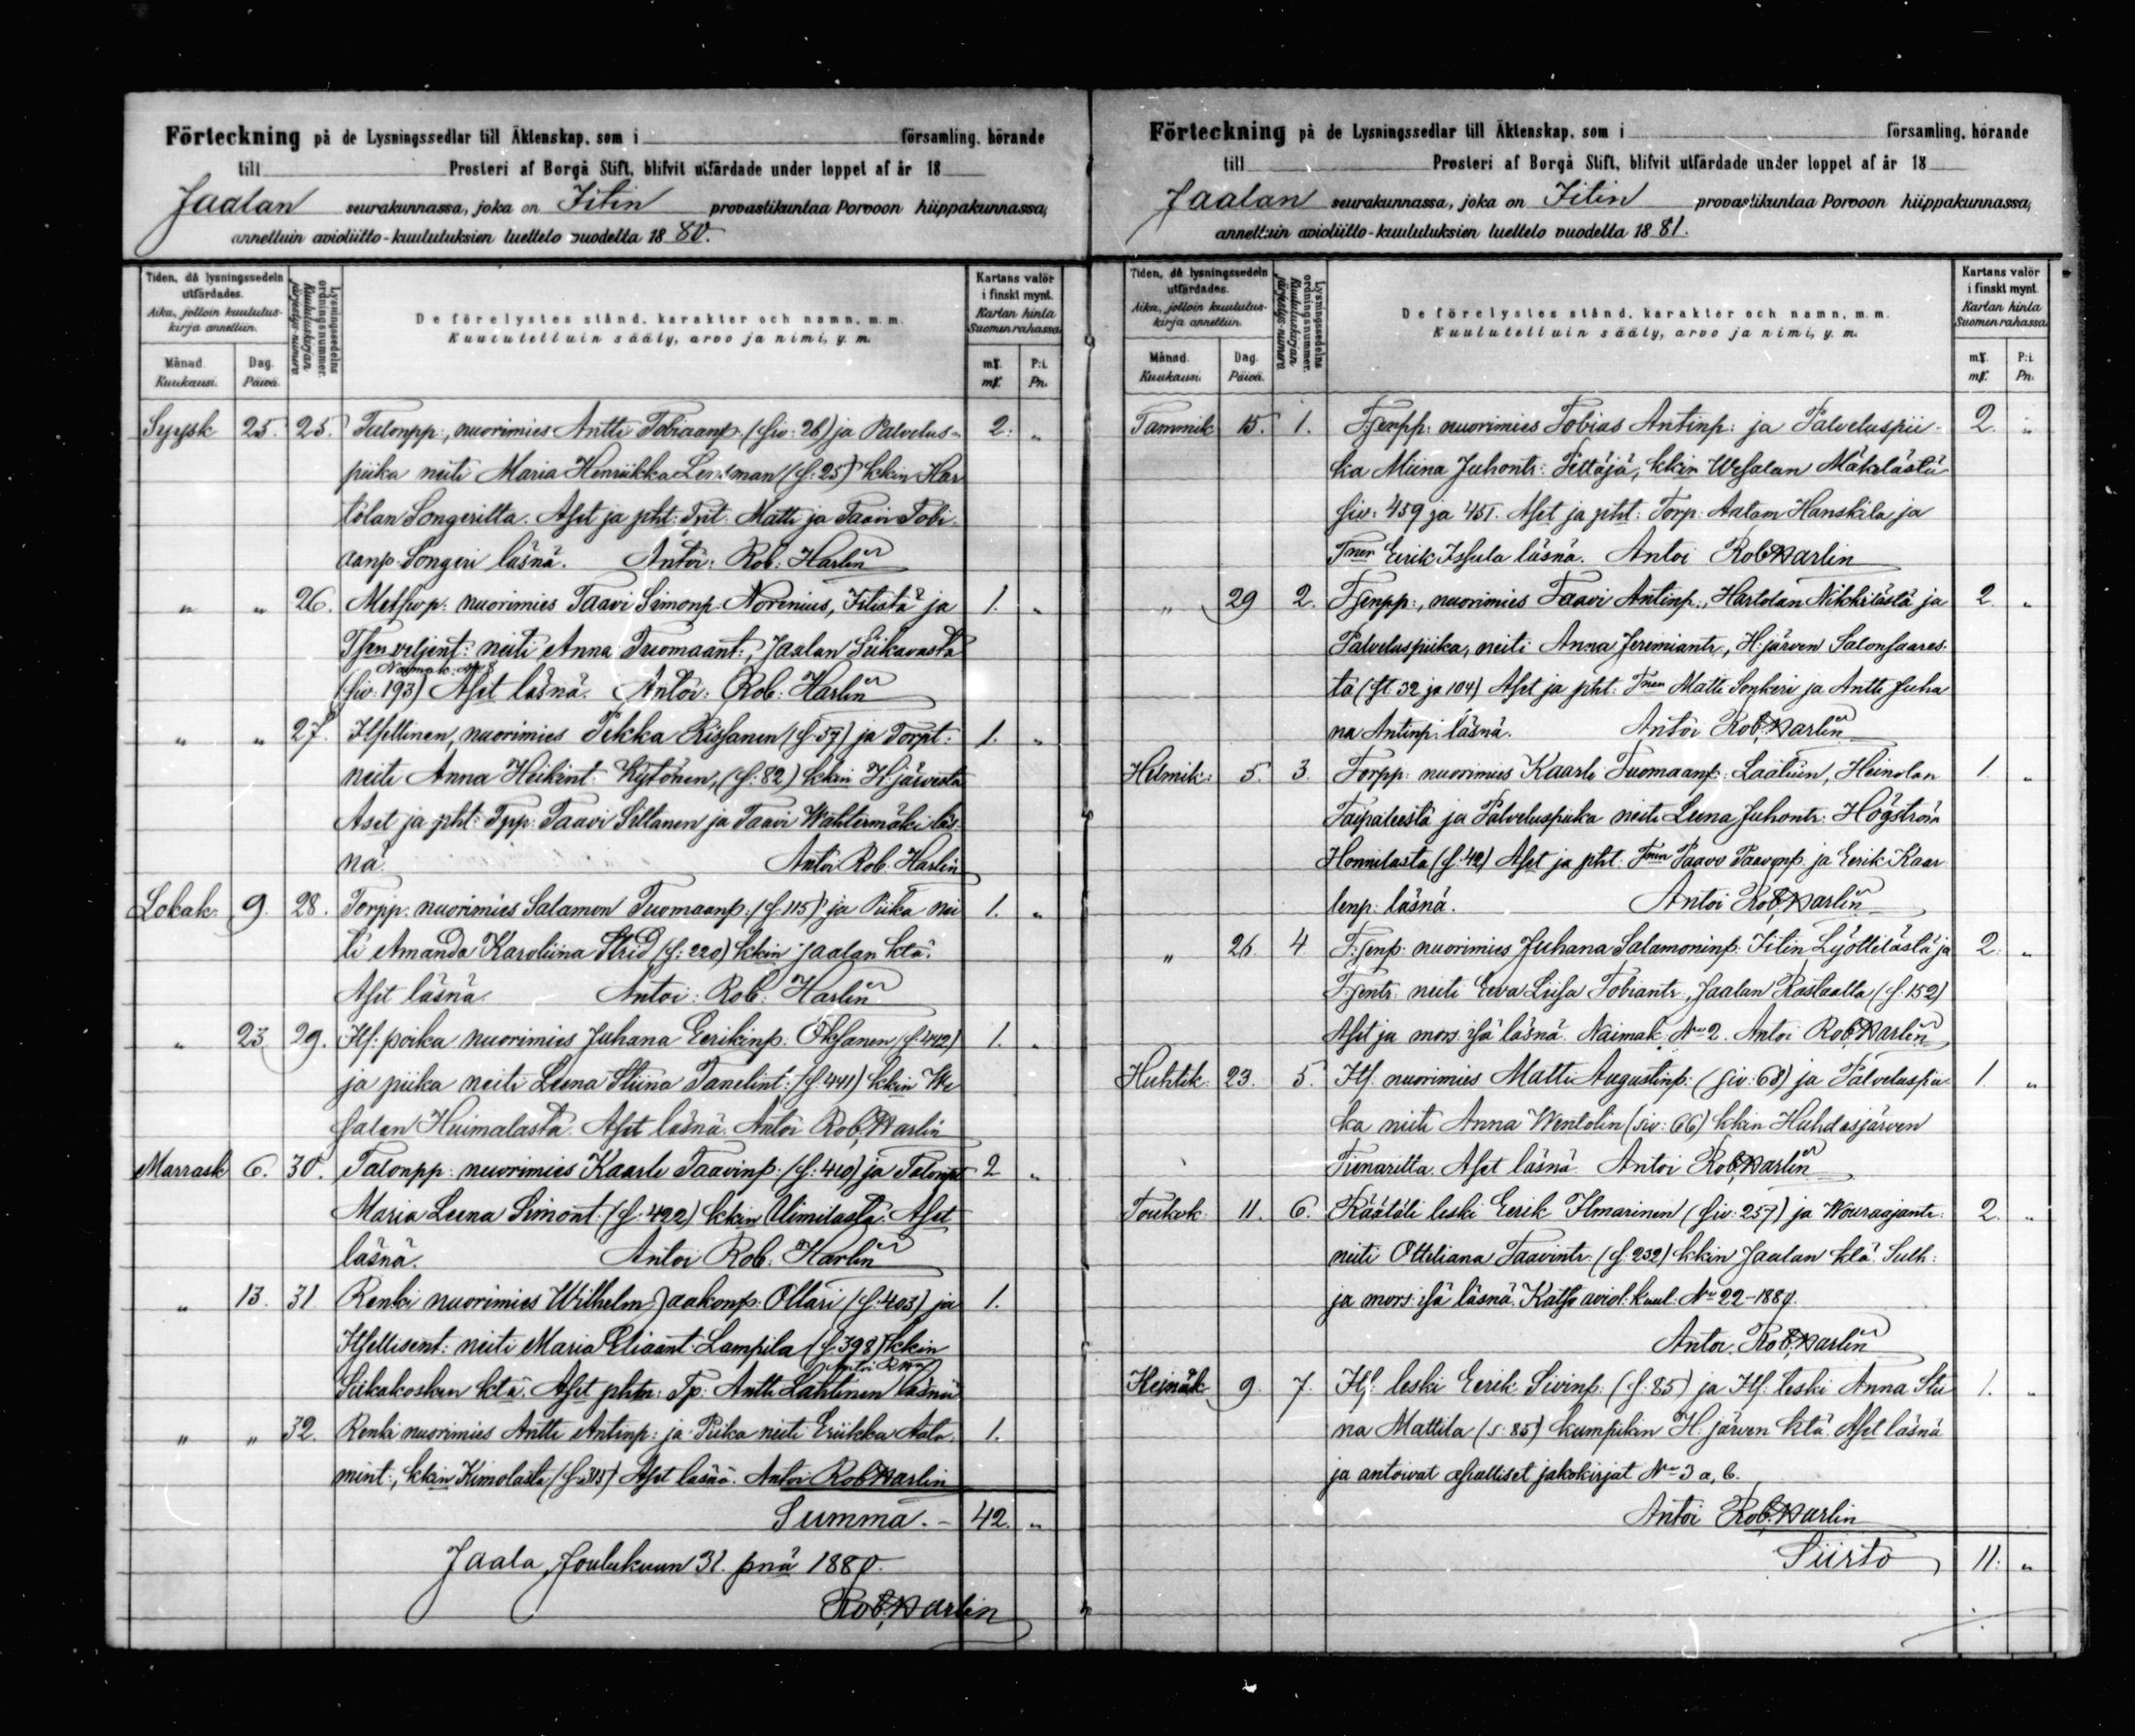 Förteckning på de Lysningssedlar till Äktenskap, som i församling, hörande
till Prosteri af Borgå Stift, blifvit utfärdade under loppet af år 18
Jaalan seurakunnassa, joka on Iitin provastikuntaa Porvoon hiippakunnassa,
annettuin avioliitto-kuulutuksien luettelo vuodelta 1880.
Tiden, då lysningssedeln utfärdades.
Aika, jolloin kuulutuskirja annettiin.
Månad. Kuukausi.
Dag. Päivä.
Lysningssedelns ordningsnummer.
Kuulutuskirjan järjestys-numero
De förelystes stånd, karakter och namn, m. m.
Kuulutettuin sääty, arvo ja nimi, y. m.
Kartans valör i finskt mynt.
Kartan hinta Suomen rahassa
mk. P:i
mk. Pn.
Syysk 25. 25. Talonpp:, nuorimies Antti Tobiaanp. (siv: 26) ja Palvelus- 2. "
piika neiti Maria Henriikka Lensman (s: 25) kkin Har
tolan Songerilta. Aset ja pht: Tpit: Matti ja Taavi Tobi
aanp Songeri läsnä. Antoi: Rob: Harlin
" " 26. Metsvp: nuorimies Taavi Simonp. Norenius, Iitistä ja 1. "
Tsen veljent: neiti Anna Tuomaant:, Jaalan Siikavasta
Naimak: No 8
(siv: 193) Aset läsnä. Antoi: Rob: Harlin
" " 27. Itsellinen, nuorimies Pekka Rissanen (s: 57) ja Torpt: 1. "
neiti Anna Heikint: Kytönen, (s: 82) kkin H:järvestä
Aset ja pht: Tpp: Taavi Siltanen ja Taavi Wahtermäki läs
nä. Antoi Rob. Harlin
Lokak: 9. 28. Torpp: nuorimies Salamon Tuomaanp: (s: 115) ja Piika nei 1. "
ti Amanda Karoliina Strid (s: 220) kkin Jaalan ktä.
Aset läsnä. Antoi: Rob: Harlin
" 23. 29. Its: poika nuorimies Juhana Eerikinp: Oksanen (s: 442) 1. "
ja piika neiti Leena Stiina Tanelint: (s: 441) kkin We
salan Huimalasta. Aset läsnä. Antoi Rob. Harlin
Marrask 6. 30. Talonpp: nuorimies Kaarle Taavinp: (s: 410) ja Talonpt 2 "
Maria Leena Simont: (s: 422) kkin Uimilasta. Aset
läsnä. Antoi Rob: Harlin
" 13. 31 Renki nuorimies Wilhelm Jaakonp: Ollari (s: 403) ja 1.
Itsellisent: neiti Maria Eliaant: Lampila (s: 398) kkin
Siikakosken ktä. Aset phtn: Tp: Antti Lahtinen läsnä
" " 32. Renki nuorimies Antti Antinp: ja Piika neiti Eriikka Aata- 1.
mint:, kkin Kimolasta (s: 315) Aset läsnä. Antoi Rob Harlin
Summa. - 42. "
Jaala, Joulukuun 31. pnä 1880.
Rob. Harlin
Förteckning på de Lysningssedlar till Äktenskap, som i församling, hörande
till Prosteri af Borgå Stift, blifvit utfärdade under loppet af år 18
Jaalan seurakunnassa, joka on Iitin provastikuntaa Porvoon hiippakunnassa,
annettuin avioliitto-kuulutuksien luettelo vuodelta 1881.
Tiden, då lysningssedeln utfärdades.
Aika, jolloin kuulutuskirja annettiin.
Månad. Kuukausi.
Dag. Päivä.
Lysningssedelns ordningsnummer.
Kuulutuskirjan järjestys-numero
De förelystes stånd, karakter och namn, m. m.
Kuulutettuin sääty, arvo ja nimi, y. m.
Kartans valör i finskt mynt.
Kartan hinta Suomen rahassa
mk. P:i.
mk. Pn.
Tammik 15. 1. T:senpp: nuorimies Tobias Antinp: ja Palveluspii- 2. "
ka Miina Juhontr: Pettäjä, kkin Wesalan Mäkelästä
siv: 459 ja 451. Aset ja phtt: Torp: Aatam Hanskila ja
Tnen Eerik Issula läsnä. Antoi Rob Harlin
" 29 2. T:senpp:, nuorimies Taavi Antinp:, Hartolan Nikkilästä ja 2. "
Palveluspiika, neiti Anna Jeremiantr, H:järven Salonsaares-
ta (st: 32 ja 104) Aset ja pht: Tnen Matti Sonkeri ja Antti Juha
na Antinp: läsnä. Antoi Rob. Harlin
Helmik: 5. 3. Torpp: nuorimies Kaarle Tuomaanp: Laatun, Heinolan 1. "
Taipaleesta ja Palveluspiika neiti Leena Juhontr: Högström
Honnilasta (s: 42) Aset ja pht: Tnen Paavo Paavonp: ja Eerik Kaar
lenp: läsnä. Antoi Rob. Harlin
" 26. 4. T:senp: nuorimies Juhana Salamoninp: Iitin Lyöttilästä ja 2. "
T:sentr: neiti Eeva Liisa Tobiantr:, Jaalan Rastaalta (s: 152)
Aset ja mors: isä läsnä. Naimak: No 2. Antoi Rob. Harlin
Huhtik: 23. 5. Its: nuorimies Matti Augustinp: (siv: 68) ja Palveluspii 1. "
ka neiti Anna Wentolin (siv: 66) kkin Huhdasjärven
Tienarilta. Aset läsnä. Antoi Rob. Harlin
Toukok: 11. 6. Räätäli leski Eerik Ilmarinen (siv: 257) ja Wouraajantr: 2. "
neiti Ottiliana Taavintr: (s: 232) kkin Jaalan ktä. Sulh:
ja mors: isä läsnä. Katso aviol: kuul: No 22-1880.
Antoi Rob. Harlin
Heinäk 9. 7. Its: leski Eerik Sivinp: (s: 85) ja Its: leski Anna Stii 1. "
na Mattila (s: 85) kumpikin H:järven ktä. Aset läsnä
ja antoivat asialliset jakokirjat No 3 a, b.
Antoi Rob. Harlin
Siirto 11. "